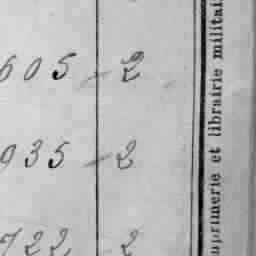 605 - 2
935 - 2
722 - 2
imprimerie et librairie militai